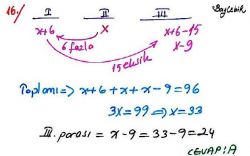 16./ I II III
x+6 x x+6-15
6 fazla x-9
15 eksik
Toplamı => x+6+x+x-9=96
3x=99 => x=33
III. parası = x-9=33-9=24
CEVAP: A